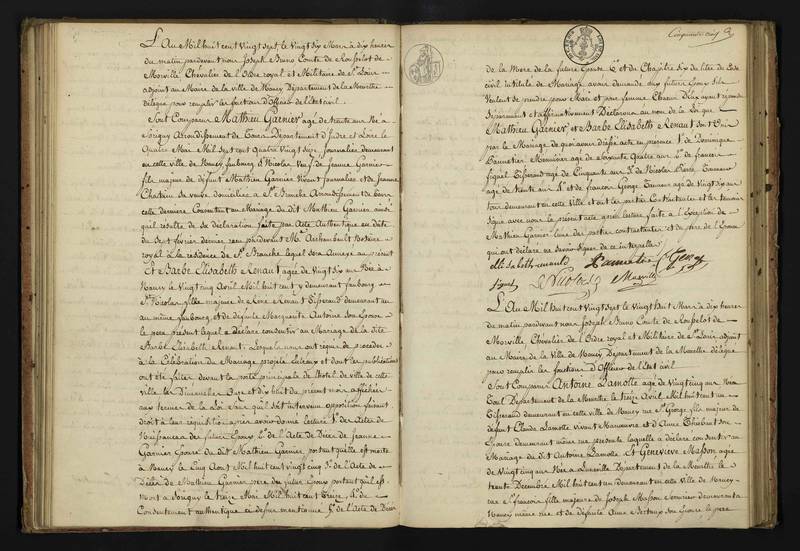 L'An Mil huit cent Vingt sept, le Vingt Six Mars à dix heures
du matin pardevant nous Joseph Bruno Comte de
Morville Chevalier de l'Ordre royal et Militaire de St Louis
adjoint au Maire de la ville de Nancy Département de la Meurthe
délégué pour remplir les fonctions d'Officier de l'Etat civil.
Sont Comparus Mathieu Garnier agé de trente ans Né à
Sorigny Arrondissement de Tours Département d'Indre et Loire le
quatre Mai Mil Sept cent quatre Vingt Seize, Journalier, demeurant
en cette ville de Nancy faubourg St Nicolas Veuf de Jeanne Garnier
fils majeur de défunt Mathieu Garnier Vivant Journalier, et de Jeanne
sa veuve domiciliée à St Branchs Arrondissement de Tours
cette dernière Consentant au Mariage du dit Mathieu Garnier ainsi
qu'il résulte de sa déclaration faite par Acte Authentique en date
du Sept février dernier reçu pardevant Me Archambault Notaire
royal à la résidence de St Branchs lequel sera Annexé au présent
Et Barbe Elisabeth Renaut agée de Vingt six ans Née à
Nancy le Vingt Avril Mil huit cent y demeurant faubourg
St Nicolas, fille majeure de Renaut Tisserand demeurant au
au même faubourg et de défunte Marguerite Antoine son Epouse
le père présent lequel a déclaré consentir au Mariage de la dite
Barbe Elisabeth Renaut. Lesquels nous ont requis de procéder
à la Célébration du Mariage projeté entr'eux et dont les publications
ont été faites devant la porte principale de l'hotel de ville de cette
ville les Dimanches Onze et dix huit du présent mois affichées
aux termes de la Loi sans qu'il soit intervenu opposition faisant
droit à leur réquisition après avoir donné lecture 1° des Actes de
Naissances des futurs Epoux 2° de l'Acte de Décès de Jeanne
Garnier épouse du dit Mathieu Garnier, portant qu'elle est morte
à Nancy le Cinq Aout Mil huit cent Vingt cinq 3° de l'Acte de
Décès de Mathieu Garnier père du futur Epoux portant qu'il est
Mort à Sorigny le treize Mai Mil huit cent Treize, 4° du
Consentement authentique ci dessus mentionné 5° de l'Acte de Décès
de la Mère de la future Epouse 6° et du Chapitre Six du titre du Code
civil intitulé du Mariage avons demandé aux futurs Epoux s'ils
Veulent se prendre pour Mari et pour femme. Chacun d'eux ayant répondu
Séparément et affirmativement Déclarons au nom de la Loi que
Mathieu Garnier, et Barbe Elisabeth Renaut sont Unis
par le Mariage de quoi avons dressé acte en présence 1° de Dominique
Menuisier agé de Soixante quatre ans 2° de francois
Tisserand agé de Cinquante ans 3° de Nicolas
agé de trente ans 4° et de francois George Tanneur agé de Vingt six ans
tous demeurant en cette Ville et ont les parties Contractantes et les temoins
Signé avec nous le présent acte après lecture faite à l'Exception de
Mathieu Garnier l'une des parties contractantes et du père de l'Epouse
qui ont déclaré ne Savoir Signer de ce interpellés
L'An Mil huit cent Vingt sept le Vingt huit Mars à dix heures
du matin pardevant nous Joseph Bruno Comte de
Morville, Chevalier de l'Ordre royal et Militaire de St Louis adjoint
au Maire de la Ville de Nancy Département de la Meurthe délégué
pour remplir les fonctions d'Officier de l'Etat civil
Sont Comparus Antoine Lamotte agé de Vingt cinq ans Né à
Toul Département de la Meurthe le treize Avril Mil huit cent un
Tisserand demeurant en cette ville de Nancy rue St George fils majeur de
défunt Claude Lamotte vivant Manoeuvre et d'Anne Thiebaut son
Epouse demeurant même rue présente laquelle a déclaré consentir au
Mariage du dit Antoine Lamotte. Et Geneviève Masson agée
de Vingt cinq ans Née à Lunéville Département de la Meurthe le
trente Decembre Mil huit cent un demeurant en cette Ville de Nancy
rue St francois fille majeure de Joseph Masson demeurant à
Nancy même rue et de défunte Anne son Epouse le père